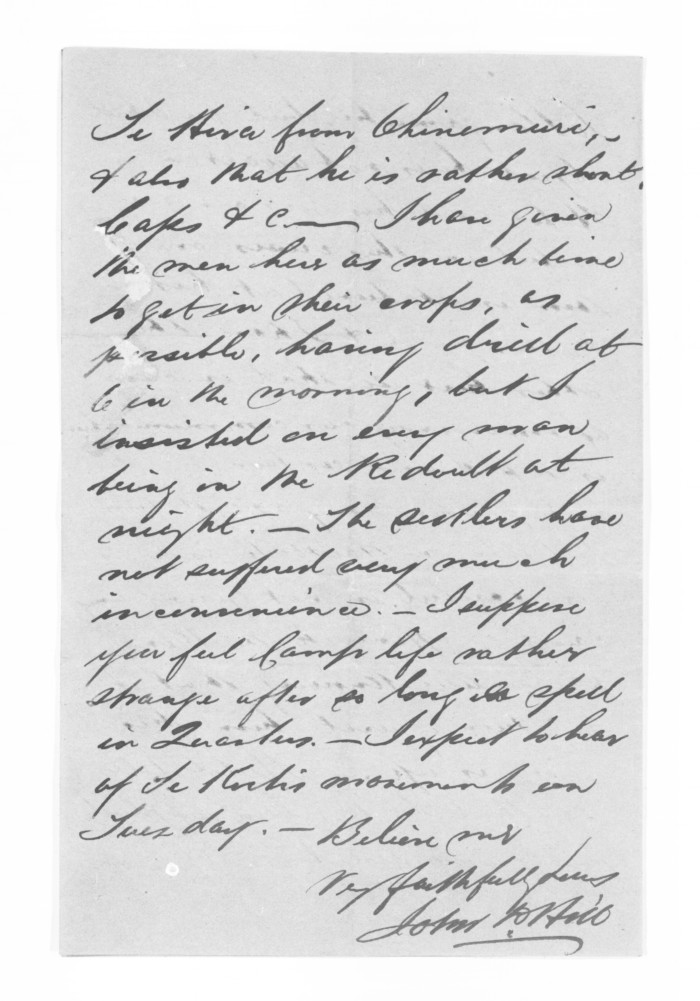 Te Hira from Ohinemuri, -
& also that he is rather short,
Caps & c — I have given
the men here as much time
to get in their crops, as
possible, having drill at
6 in the morning, but I
insisted on every man
being in the Redoubt at
night. — The settlers have
not suffered very much
inconvenience. — I suppose
you feel Camp life rather
strange after so long a spell
in Quarters. — I expect to hear
of Te Kootis movements on
Tuesday. — Believe me
Very faithfully Yours
John D Hill